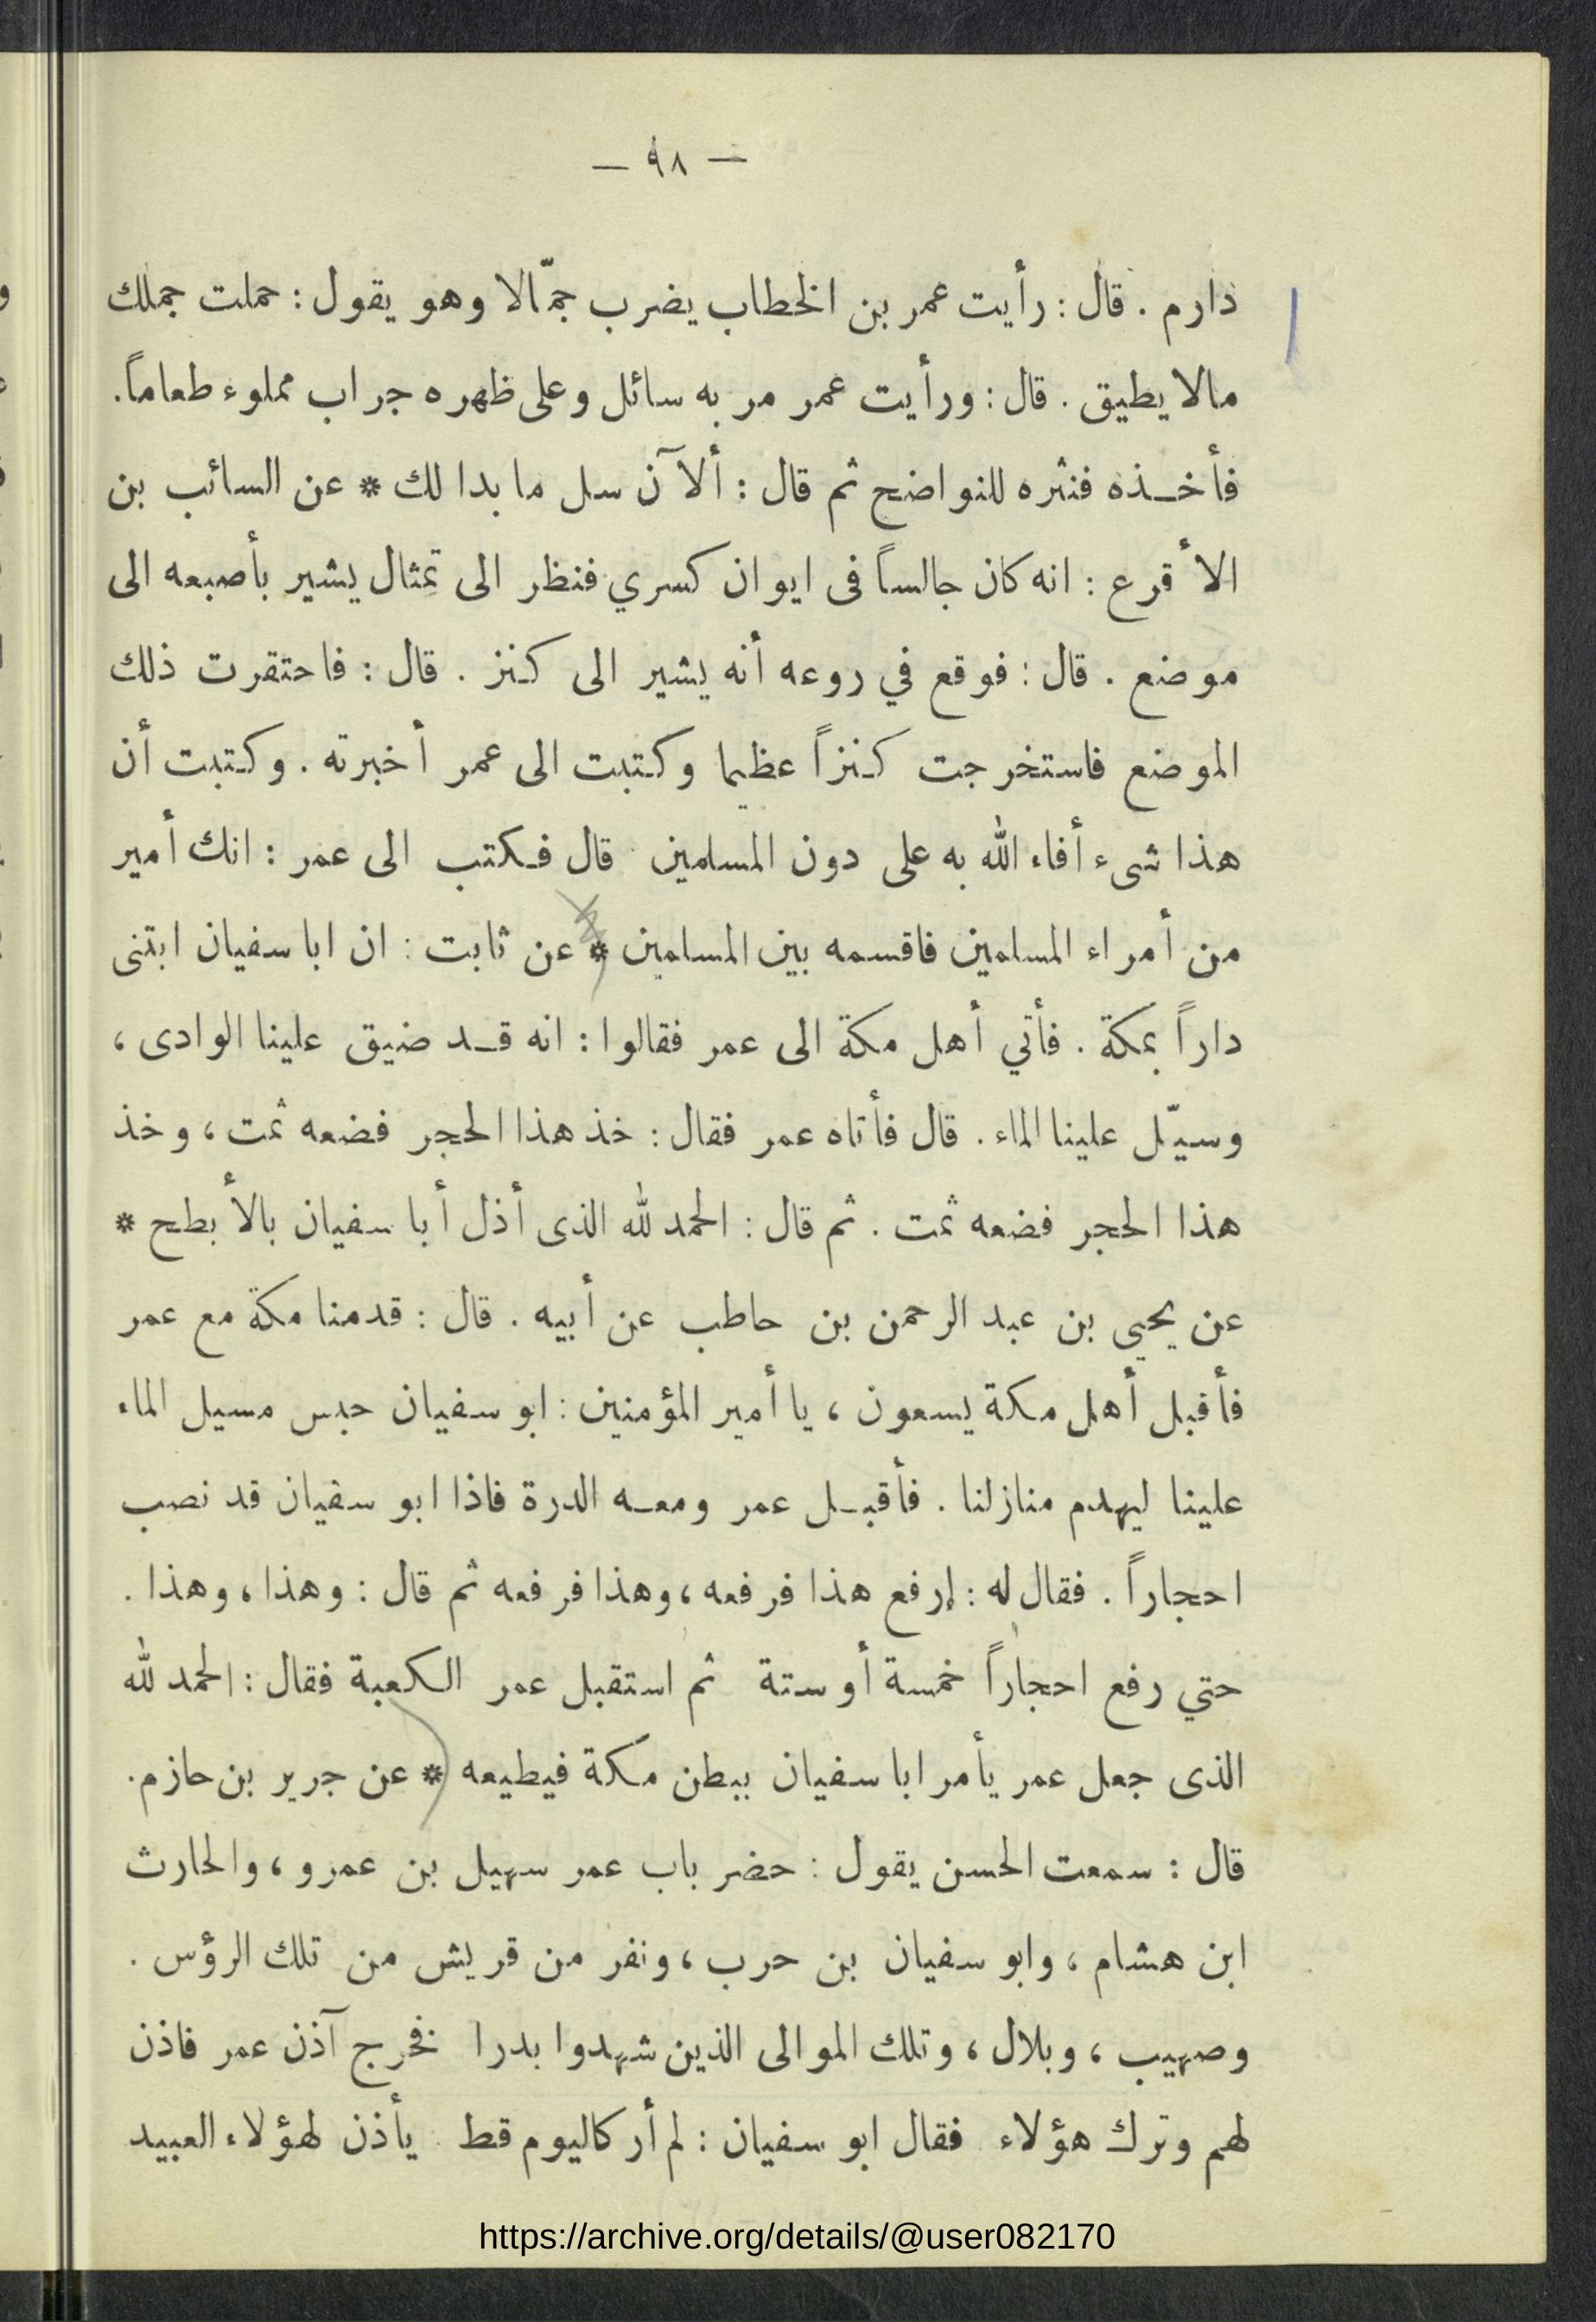 — ٩٨ —
دارم . قال : رأيت عمر بن الخطاب يضرب جمّالا وهو يقول : حملت جملك
مالا يطيق . قال : ورأيت عمر مر به سائل وعلى ظهره جراب مملوء طعاماً.
فأخـذه فنثره للنواضح ثم قال : ألآن سل ما بدا لك * عن السائب بن
الأقرع : انه كان جالساً فى ايوان كسري فنظر الى تمثال يشير بأصبعه الى
موضع . قال : فوقع في روعه أنه يشير الى كنز . قال : فاحتقرت ذلك
الموضع فاستخرجت كنزاً عظيما وكتبت الى عمر أخبرته . وكتبت أن
هذا شىء أفاء الله به على دون المسلمين قال فكتب الى عمر : انك أمير
من أمراء المسلمين فاقسمه بين المسلمين * عن ثابت : ان ابا سفيان ابتنى
داراً بمكة . فأتي أهل مكة الى عمر فقالوا : انه قـد ضيق علينا الوادى ،
وسيّل علينا الماء . قال فأتاه عمر فقال : خذ هذا الحجر فضعه ثمت ، وخذ
هذا الحجر فضعه ثمت . ثم قال : الحمد لله الذى أذل أبا سفيان بالأبطح *
عن يحيي بن عبد الرحمن بن حاطب عن أبيه . قال : قدمنا مكة مع عمر
فأقبل أهل مكة يسعون ، يا أمير المؤمنين : ابو سفيان حبس مسيل الماء
علينا ليهدم منازلنا . فأقبـل عمر ومعـه الدرة فاذا ابو سفيان قد نصب
احجاراً . فقال له : إرفع هذا فرفعه ، وهذا فرفعه ثم قال : وهذا ، وهذا .
حتي رفع احجاراً خمسة أو ستة ثم استقبل عمر الكعبة فقال : الحمد لله
الذى جعل عمر يأمر ابا سفيان ببطن مكة فيطيعه * عن جرير بن حازم.
قال : سمعت الحسن يقول : حضر باب عمر سهيل بن عمرو ، والحارث
ابن هشام ، وابو سفيان بن حرب ، ونفر من قريش من تلك الرؤس .
وصهيب ، وبلال ، وتلك الموالى الذين شهدوا بدرا فخرج آذن عمر فاذن
لهم وترك هؤلاء فقال ابو سفيان : لم أر كاليوم قط يأذن لهؤلاء العبيد
https://archive.org/details/@user082170